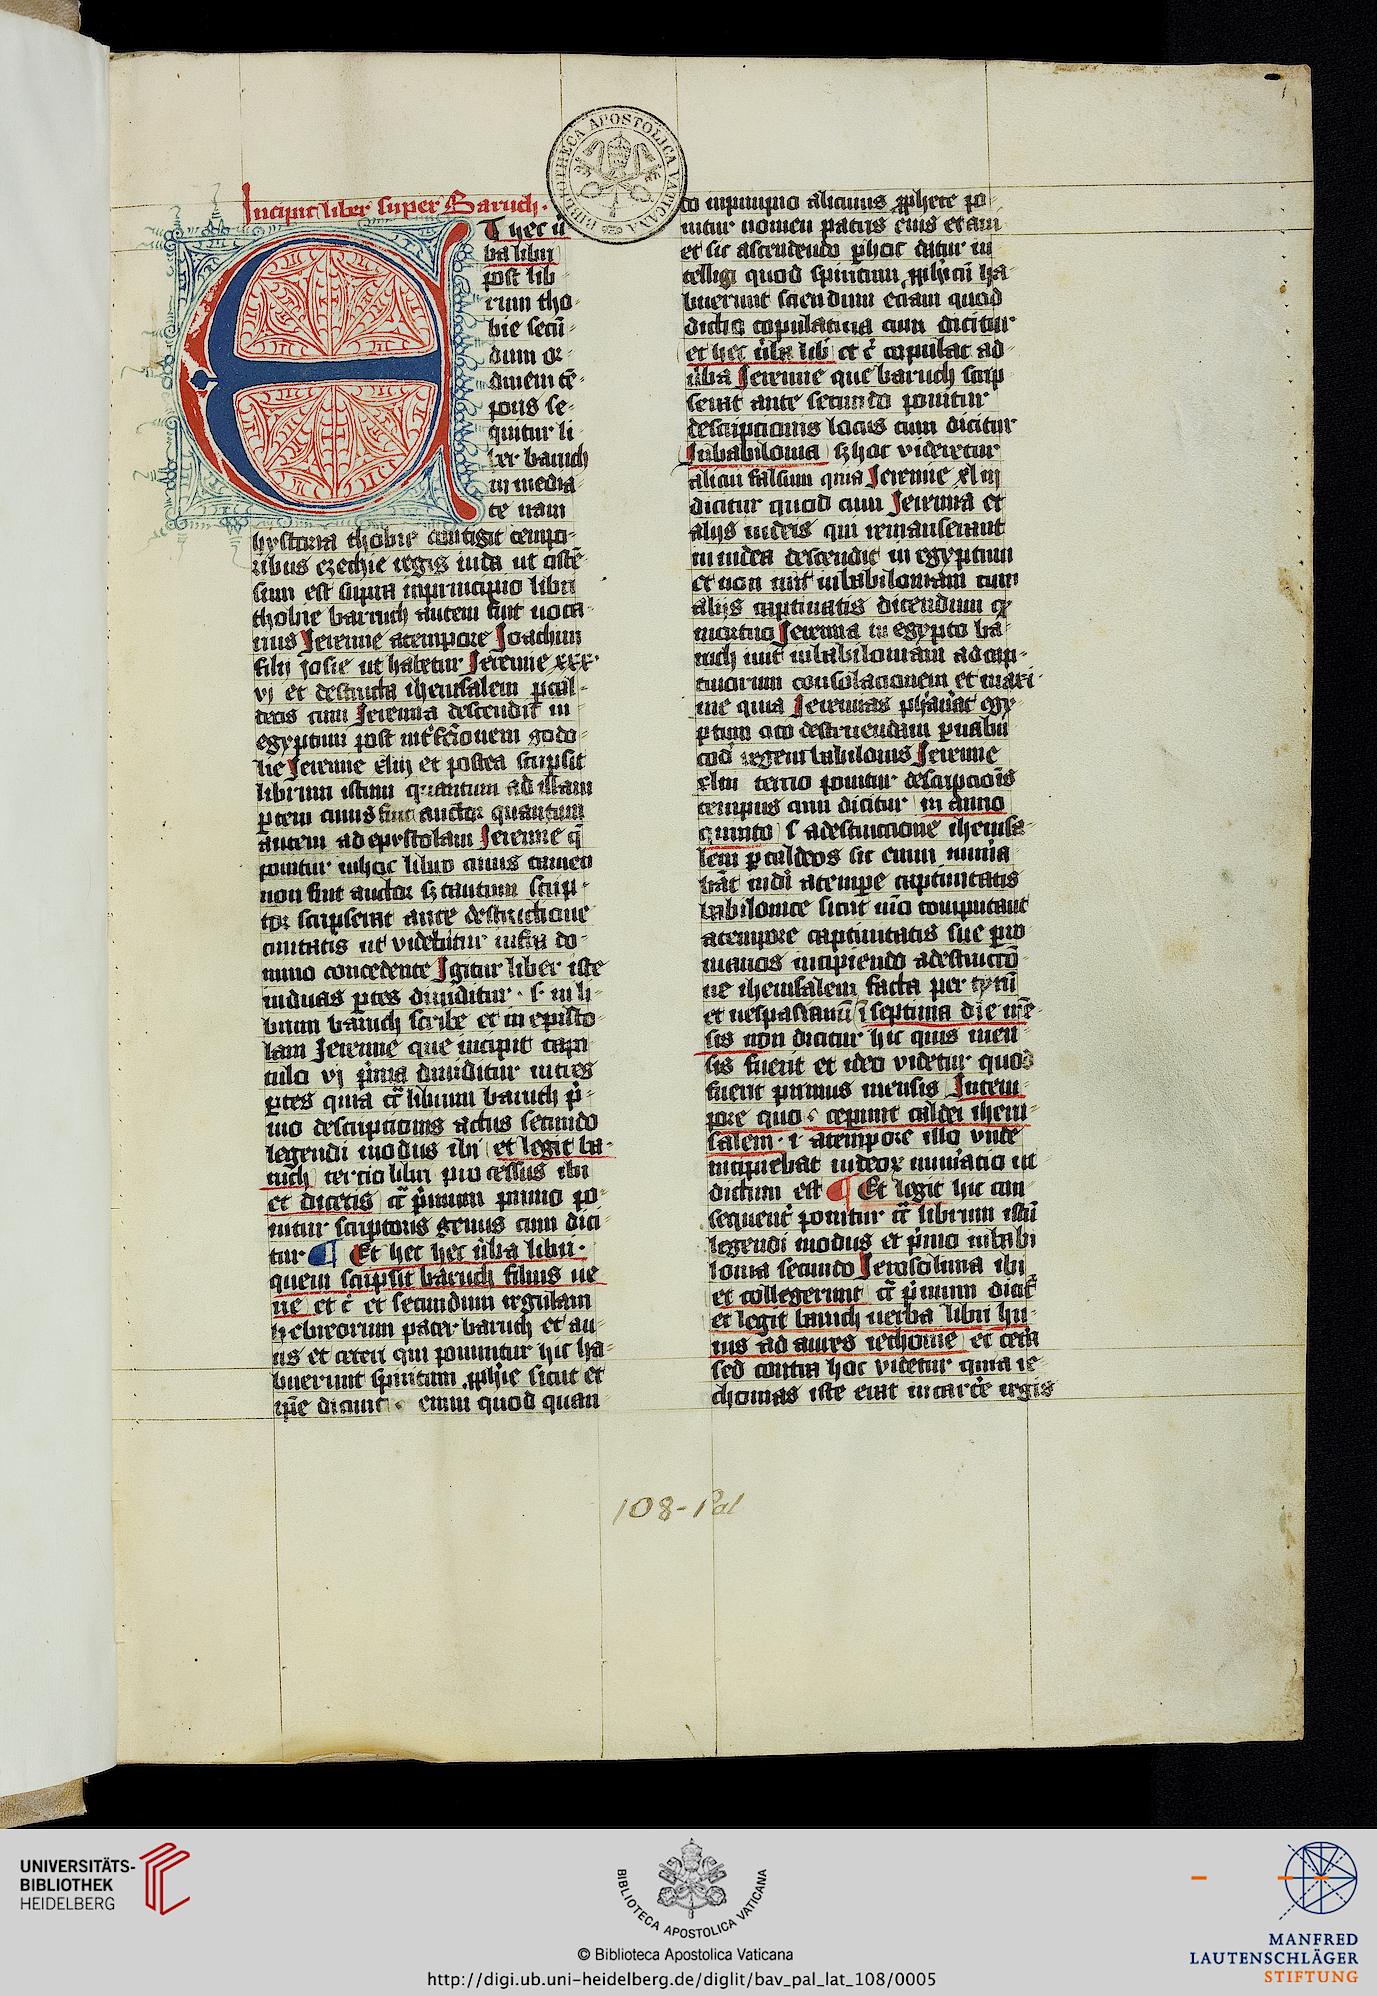 Incipit liber super Baruch.
Et hec ũ
ba libri
post lib
rum tho
bie secũ
dum or
dinem tẽ
poris se
quitur li
ber baruch
in media
te nam
hystoria thobie contigit tempo
ribus ezechie regis iuda ut ostẽ
sum est supra inprincipio libri
thobie barruch autem fuit nota
rius Jeremie atempore Joachim
filij josie ut habetur Jeremie xxx
vj et destructa iherusalem p cal
deos cum Jeremia descendit in
egyptum post int̃fc̃ionem godo
lie Jeremie xliij et postea scripsit
librum istum quantum ad istam
ptem cuius fuit auctor quantum
autem ad epystolam Jeremie q̃
ponitur inhoc libro cuius tamen
non fuit auctor sz tantum scrip
tor scripserat ante destructione
ciuitatis ut videbitur infra do
mino concedente Igitur liber iste
induas ptes diuiditur . s. in li
brum baruch scribe et in episto
lam Jeremie que incipit capi
tulo vj p̃ma diuiditur intres
ptes quia cĩ librum baruch p̃
mo descriptionis actus secundo
legendi modus ibi et legit ba
ruch tercio libri processus ibi
et dicetis cĩ p̃mum primo po
nitur scriptoris genus cum dici
tur ¶ Et hec hec ũba libri .
quem scripsit baruch filius ne
rie et c̃ et secundum regulam
hebreorum pater baruch et au
us et ceteri qui ponuntur hic ha
buerunt spiritum ꝓphie sicut et
ip̃e dicunt enim quod quan
do inprincipio alicuius ꝓphete po
nitur nomen patris eius et aui
et sic ascendendo p hoc datur in
telligi quod spiritum ꝓpheticũ ha
buerunt sciendum eciam quod
dictio copulatiua cum dicitur
et hec ũba lib̃ et c̃ copulat ad
ũba Jeremie que baruch scrip
serat ante secundo ponitur
descriptionis locus cum dicitur
Inbabilonia sz hoc videretur
alicui falsum quia Jeremie xliij
dicitur quod cum Jeremia et
alijs iudeis qui remanserant
in iudea descendit in egyptum
et non iuit inbabiloniam cum
alijs captiuatis dicendum qꝫ
mortuo Jeremia in egypto ba
ruch iuit inbabiloniam ad cap
tiuorum consolacionem et maxi
me quia Jeremias pphauerat egy
ptum cito destruendam p nabu
cod̃ regem babilonis Jeremie
xliii tercio ponitur descripcionis
tempus cum dicitur in anno
quinto s adestructione iherusa
lem p caldeos sic enim numera
bãt iudei atempore captiuitatis
babilonice sicut mõ computant
atempore captiuitatis sue p ro
manos incipiendo adestructo
ne iherusalem facta per tytũ
et uespasianũ i septima die mẽ
sis non dicitur hic quis men
sis fuerit et ideo videtur quod
fuerit primus mensis Intem
pore quo ceperunt caldei iheru
salem . i atempore illo vnde
incipiebat iudeoꝝ numeracio ut
dictum est ¶ Et legit hic con
sequent̃ ponitur cĩ librum istũ
legendi modus et p̃mo inbabi
lonia secundo Jerosolima ibi
et collegerunt cĩ p̃mum dicit̃
et legit baruch uerba libri hu
ius ad aures iechonie et cetera
sed contra hoc videtur quia ie
chonias iste erat in carcere regis
BIBLIOTHECA APOSTOLICA VATICANA
108-Pal
UNIVERSITÄTS-
BIBLIOTHEK
HEIDELBERG
BIBLIOTECA APOSTOLICA VATICANA
© Biblioteca Apostolica Vaticana
http://digi.ub.uni-heidelberg.de/diglit/bav_pal_lat_108/0005
MANFRED
LAUTENSCHLÄGER
STIFTUNG